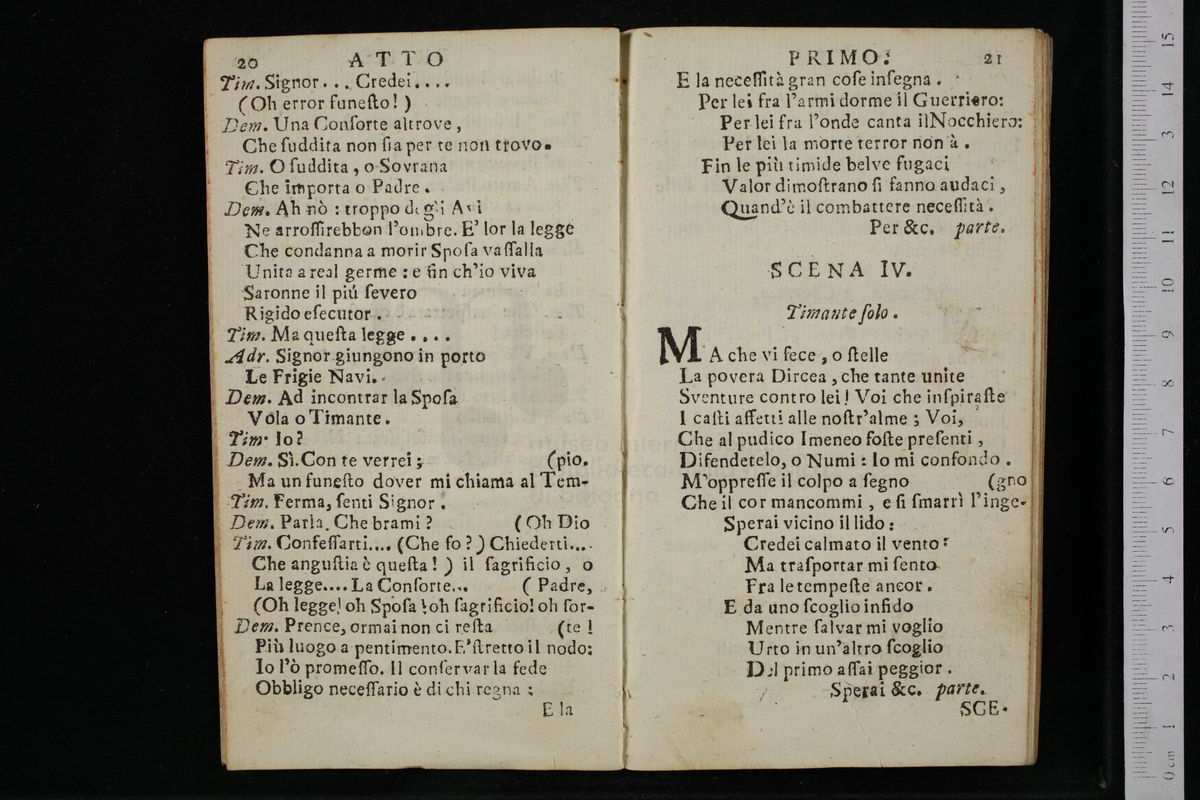 20 ATTO
Tim. Signor... Credei....
(Oh error funeſto!)
Dem. Una Conſorte altrove,
Che ſuddita non ſia per te non trovo.
Tim. O ſuddita, o Sovrana
Che importa o Padre.
Dem. Ah nò: troppo degli Avi
Ne arroſſirebbon l'ombre. E' lor la legge
Che condanna a morir Spoſa vaſſalla
Unita a real germe: e fin ch'io viva
Saronne il piú ſevero
Rigido eſecutor.
Tim. Ma queſta legge....
Adr. Signor giungono in porto
Le Frigie Navi.
Dem. Ad incontrar la Spoſa
Vola o Timante.
Tim. Io?
Dem. Sì. Con te verrei; (pio.
Ma un funeſto dover mi chiama al Tem-
Tim. Ferma, ſenti Signor.
Dem. Parla. Che brami? (Oh Dio
Tim. Confeſſarti.... (Che fo?) Chiederti....
Che anguſtia è queſta!) il ſagrificio, o
La legge.... La Conſorte... (Padre,
(Oh legge! oh Spoſa! oh ſagrificio! oh ſor-
Dem. Prence, ormai non ci reſta (te!
Più luogo a pentimento. E'ſtretto il nodo:
Io l'ò promeſſo. Il conſervar la fede
Obbligo neceſſario è di chi regna:
E la
PRIMO. 21
E la neceſſità gran coſe inſegna.
Per lei fra l'armi dorme il Guerriero:
Per lei fra l'onde canta ilNocchiero:
Per lei la morte terror non à.
Fin le più timide belve fugaci
Valor dimoſtrano ſi fanno audaci,
Quand'è il combattere neceſſità.
Per &c. parte.
SCENA IV.
Timante ſolo.
MA che vi fece, o ſtelle
La povera Dircea, che tante unite
Sventure contro lei! Voi che inſpiraſte
I caſti affetti alle noſtr'alme; Voi,
Che al pudico Imeneo foſte preſenti,
Difendetelo, o Numi: Io mi confondo.
M'oppreſſe il colpo a ſegno (gno
Che il cor mancommi, e ſi ſmarrì l'inge-
Sperai vicino il lido:
Credei calmato il vento:
Ma traſportar mi ſento
Fra le tempeſte ancor.
E da uno ſcoglio infido
Mentre ſalvar mi voglio
Urto in un'altro ſcoglio
Del primo aſſai peggior.
Sperai &c. parte.
SCE-
0 cm 1 2 3 4 5 6 7 8 9 10 11 12 13 14 15